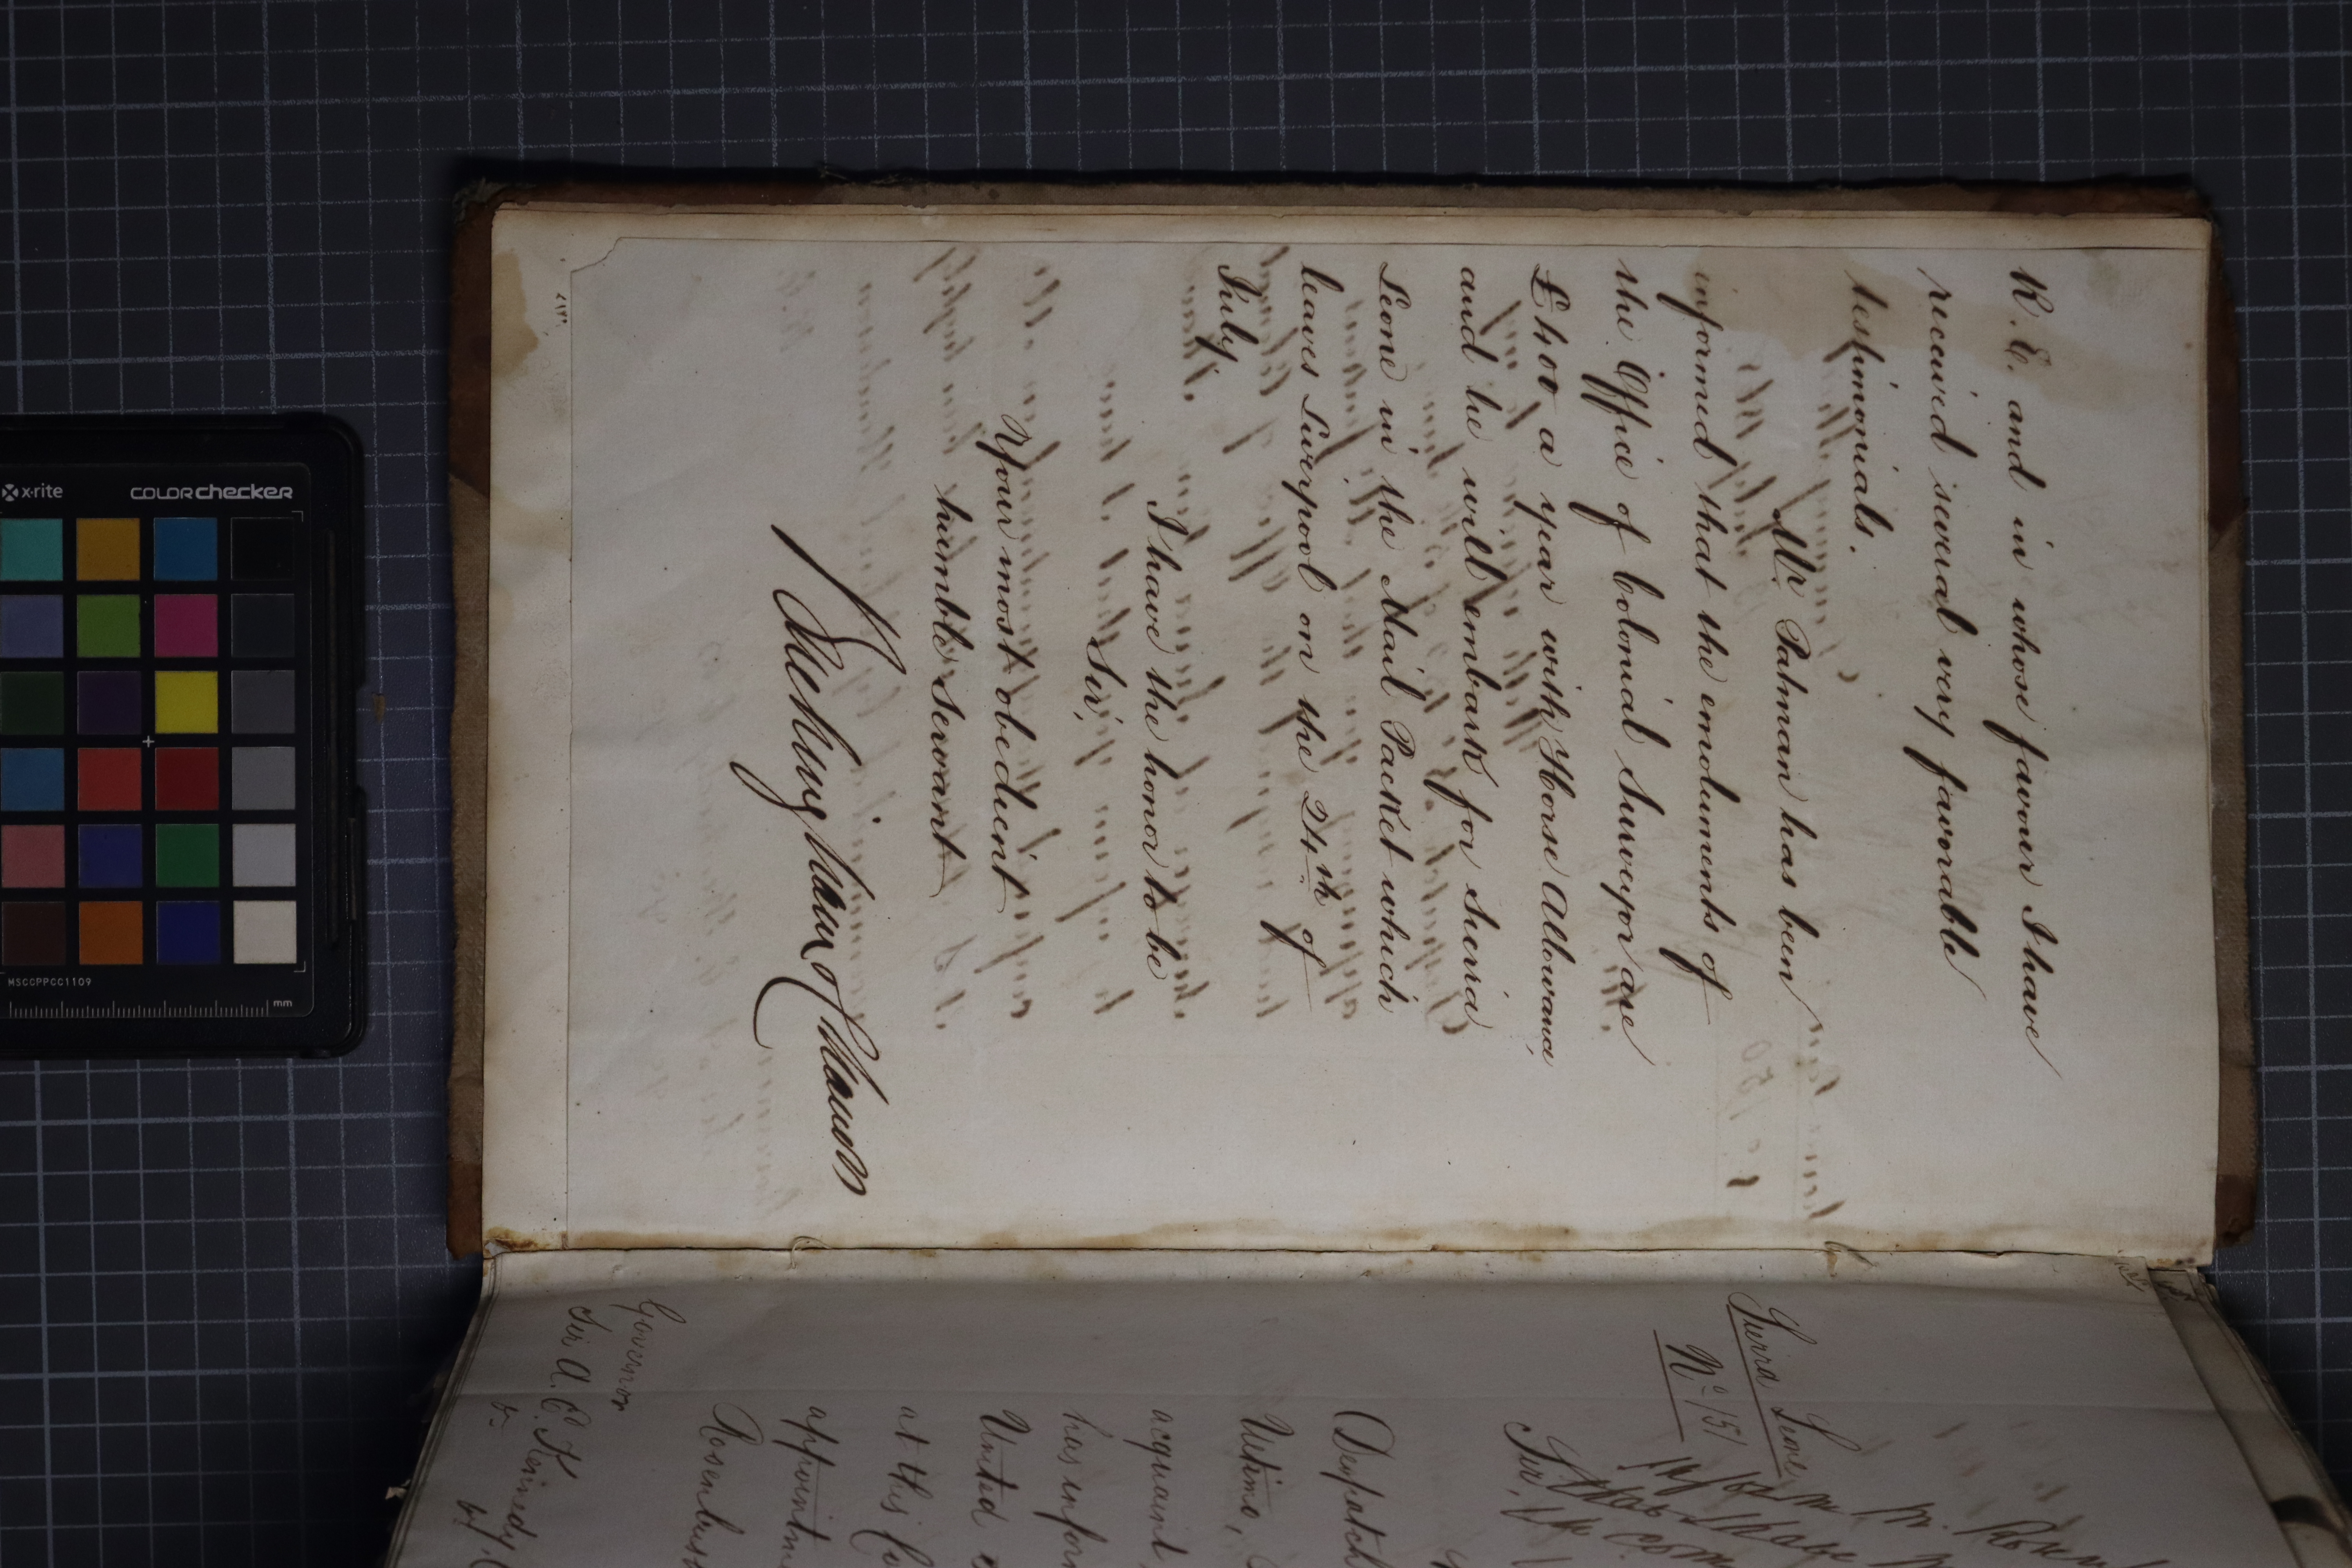 R. E. and in whose favour I have
received several very favorable
testimonials.
Mr. Patman has been
informed that the emoluments of
the Office of Colonial Surveyor are
£400 a year with Horse Allowance,
and he will embark for Sierra
Leone in the Mail Packet which
leaves Liverpool on the 24th of
July.
I have the honor to be
Sir,
Your most obedient
humble servant
Buckingham & Chandos
Sierra Leone
No. 151
Sir,
Despatch
Ultimo,
acquaint
has infor
United
at this Co
appointme
Rosenbus
Governor
Sir A. E. Kennedy,
x-rite
colorchecker
MSCCPPCC1109
mm